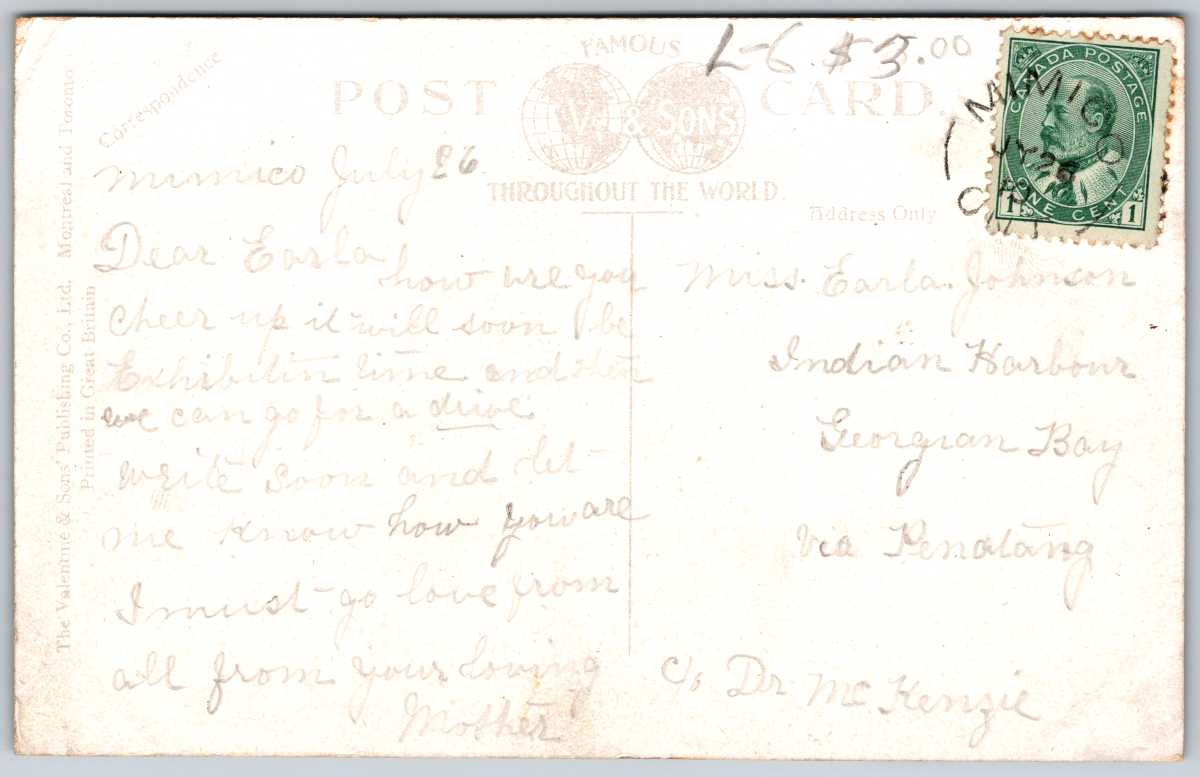 L-6 $3.00
FAMOUS
POST CARD.
V. & SONS
THROUGHOUT THE WORLD.
Correspondence
Address Only
The Valentine & Sons' Publishing Co., Ltd. Montreal and Toronto
Printed in Great Britain
CANADA POSTAGE
1 ONE CENT 1
MIMICO
JY 26
ONT
Mimico July 26
Dear Earla
how are you
Cheer up it will soon be
Exhibition time and then
we can go for a drive
write soon and let
me know how you are
I must go love from
all from your loving
Mother
Miss. Earla. Johnson
Indian Harbour
Georgian Bay
Via Penatang
c/o Dr McKenzie